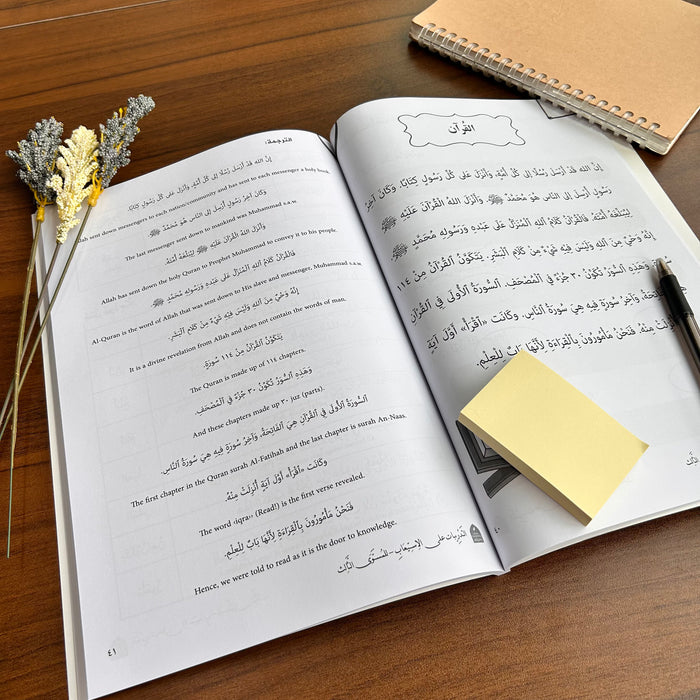 القُرآن
إِنَّ اللهَ قَدْ أَرْسَلَ رُسُلًا إِلَى كُلِّ أُمَّةٍ، وَأَنْزَلَ عَلَى كُلِّ رَسُولٍ كِتَابًا. وَكَانَ آخِرُ
رَسُولٍ أُرْسِلَ إِلَى النَّاسِ هُوَ مُحَمَّدٌ ﷺ، وَأَنْزَلَ اللهُ القُرْآنَ عَلَيْهِ ﷺ
لِيُبَلِّغَهُ أُمَّتَهُ. فَالقُرْآنُ كَلَامُ اللهِ المُنَزَّلُ عَلَى عَبْدِهِ وَرَسُولِهِ مُحَمَّدٍ ﷺ
إِنَّهُ وَحْيٌ مِنَ اللهِ وَلَيْسَ فِيهِ شَيْءٌ مِنْ كَلَامِ البَشَرِ. يَتَكَوَّنُ القُرْآنُ مِنْ ١١٤
السُّوَرُ تُكَوِّنُ ٣٠ جُزْءًا فِي المُصْحَفِ. السُّورَةُ الأُولَى فِي القُرْآنِ
وَآخِرُ سُورَةٍ فِيهِ هِيَ سُورَةُ النَّاسِ. وَكَانَتْ «اقْرَأْ» أَوَّلَ آيَةٍ
مِنْهُ. فَنَحْنُ مَأْمُورُونَ بِالْقِرَاءَةِ لِأَنَّهَا بَابٌ لِلْعِلْمِ.
٤٠
التَرجمة:
إِنَّ اللهَ قَدْ أَرْسَلَ رُسُلًا إِلَى كُلِّ أُمَّةٍ، وَأَنْزَلَ عَلَى كُلِّ رَسُولٍ كِتَابًا.
Allah sent down messengers to each nation/community and has sent to each messenger a holy book.
وَكَانَ آخِرُ رَسُولٍ أُرْسِلَ إِلَى النَّاسِ هُوَ مُحَمَّدٌ ﷺ
The last messenger sent down to mankind was Muhammad s.a.w.
وَأَنْزَلَ اللهُ القُرْآنَ عَلَيْهِ ﷺ لِيُبَلِّغَهُ أُمَّتَهُ.
Allah has sent down the holy Quran to Prophet Muhammad to convey it to his people.
فَالقُرْآنُ كَلَامُ اللهِ المُنَزَّلُ عَلَى عَبْدِهِ وَرَسُولِهِ مُحَمَّدٍ ﷺ
Al-Quran is the word of Allah that was sent down to His slave and messenger, Muhammad s.a.w.
إِنَّهُ وَحْيٌ مِنَ اللهِ وَلَيْسَ فِيهِ شَيْءٌ مِنْ كَلَامِ البَشَرِ.
It is a divine revelation from Allah and does not contain the words of man.
يَتَكَوَّنُ القُرْآنُ مِنْ ١١٤ سُورَةٍ.
The Quran is made up of ١١٤ chapters.
وَهَذِهِ السُّوَرُ تُكَوِّنُ ٣٠ جُزْءًا فِي المُصْحَفِ.
And these chapters made up ٣٠ juz (parts).
السُّورَةُ الأُولَى فِي القُرْآنِ هِيَ الفَاتِحَةُ، وَآخِرُ سُورَةٍ فِيهِ هِيَ سُورَةُ النَّاسِ.
The first chapter in the Quran surah Al-Fatihah and the last chapter is surah An-Naas.
وَكَانَت «اقْرَأْ» أَوَّلَ آيَةٍ أُنْزِلَتْ مِنْهُ.
The word ‹iqra›› (Read!) is the first verse revealed.
فَنَحْنُ مَأْمُورُونَ بِالْقِرَاءَةِ لِأَنَّهَا بَابٌ لِلْعِلْمِ.
Hence, we were told to read as it is the door to knowledge.
التَّدْرِيبَات عَلَى الِاسْتِيعَابِ - المُسْتَوَى الثَّالِث
٤١